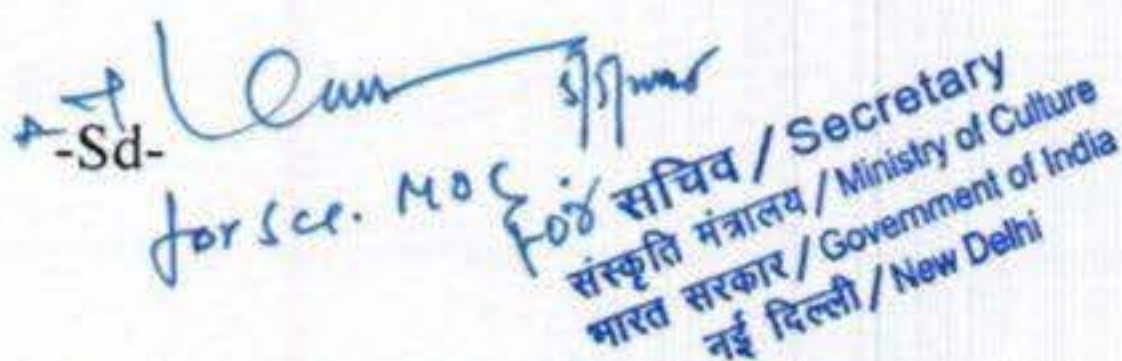 -Sd-
for Sec. MOC
For सचिव / Secretary
संस्कृति मंत्रालय / Ministry of Culture
भारत सरकार / Government of India
नई दिल्ली / New Delhi